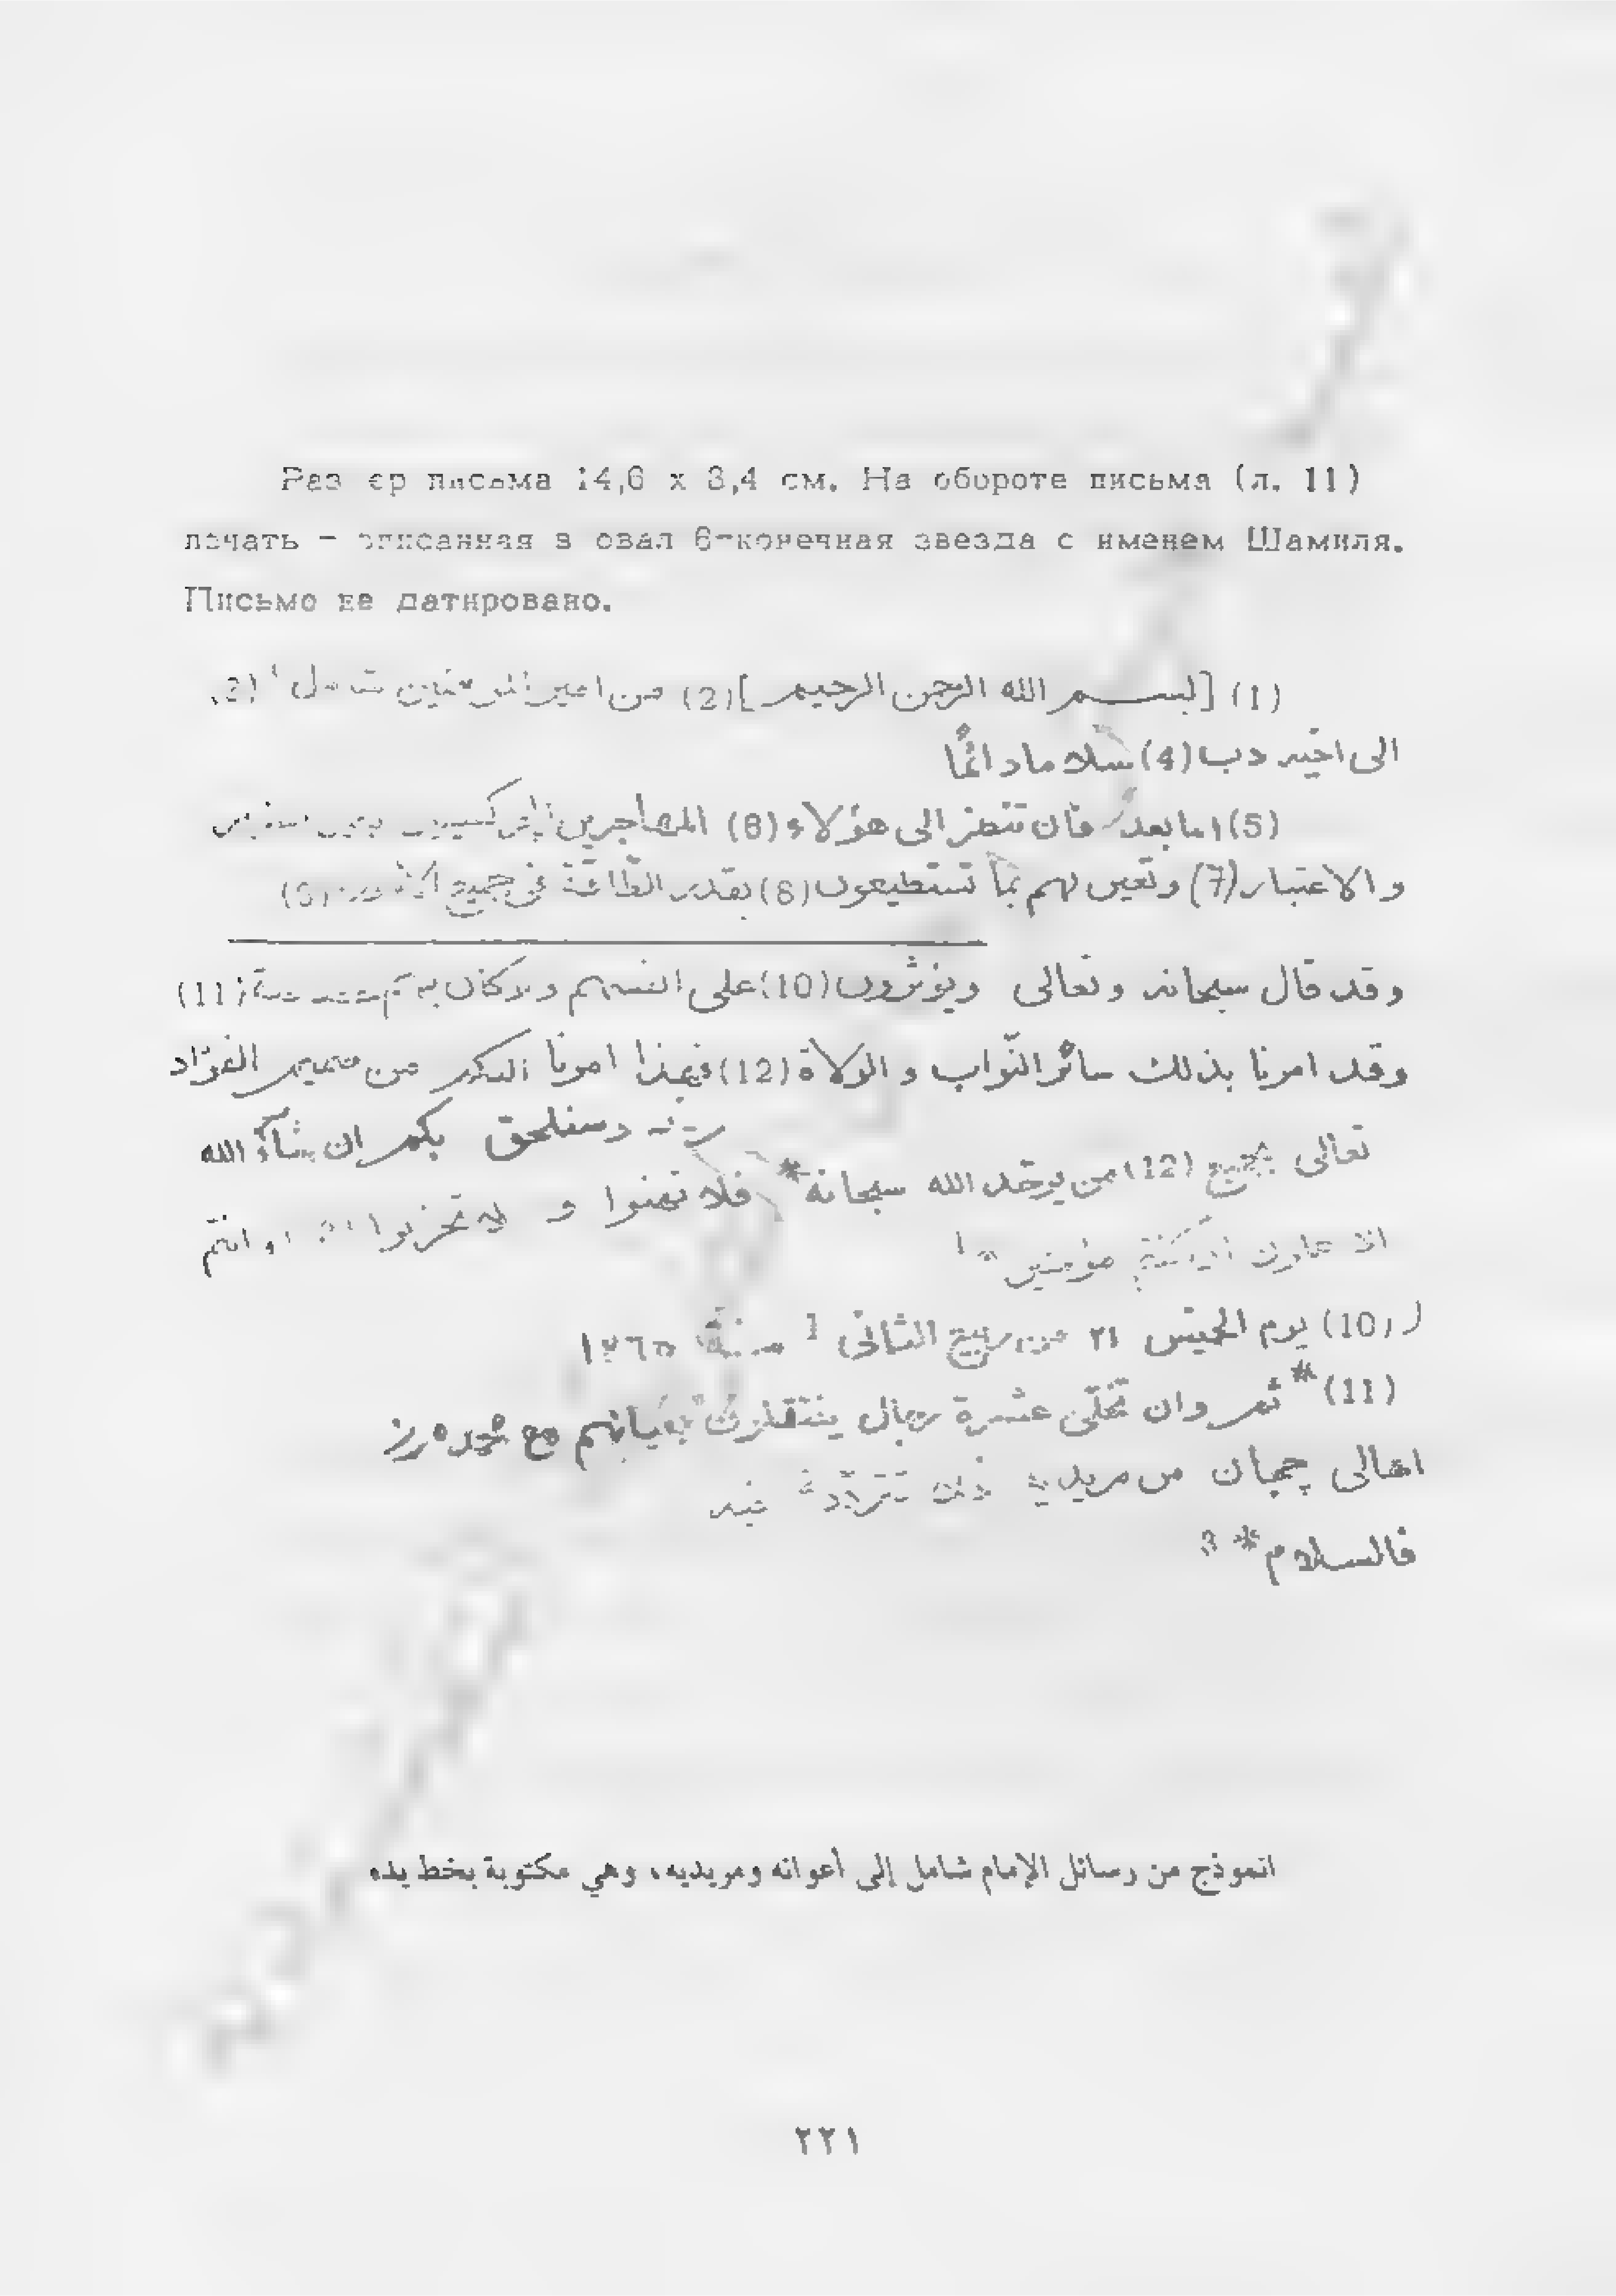 Размер письма 14,6 x 8,4 см. На обороте письма (л. 11)
печать - вписанная в овал 6-конечная звезда с именем Шамиля.
Письмо не датировано.
(1) [بسم الله الرحمن الرحيم] (2) من امير المؤمنين شامل
الى اخيه دب (4) سلاما دائمًا
(5) اما بعد فان تنظر الى هؤلاء (6) المهاجرين
والاعتبار (7) وتعين لهم بما تستطيعون (8) بقدر الطّاقة فى جميع
وقد قال سبحانه وتعالى ويؤثرون (10) على انفسهم ولوكان بهم (11)
وقد امرنا بذلك سائر النّواب والولاة (12) فبهذا امرنا اليكم من صميم الفؤاد
وسنلحق بكم ان شآءَ الله
تعالى بجميع (12) من يوحّد الله سبحانه * فلا تهنوا و لا تحزنوا وانتم
الا علون ان كنتم مؤمنين * 1
(10) يوم الخميس ٢١ من ربيع الثانى 1 سنة ١٢٦٥
(11) * ثم وان تخلّى عشرة رجال ينتقلون بعيانهم مع محمد
اهالى چچان من مريديه
فالسلام * 3
انموذج من رسائل الإمام شامل إلى أعوانه ومريديه، وهي مكتوبة بخط يده
٢٢١